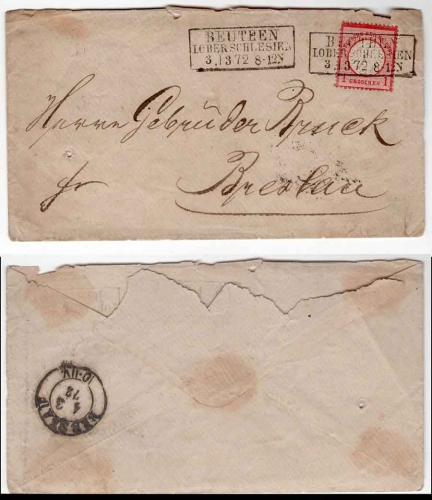 BEUTHEN
I.OBERSCHLESIEN
3.|3 72 8-12N
BEUTHEN
I.OBERSCHLESIEN
3.|3 72 8-12N
1 GROSCHEN 1
Herren Gebrüder Bruck
fr
Breslau
BRESLAU
4 3
72